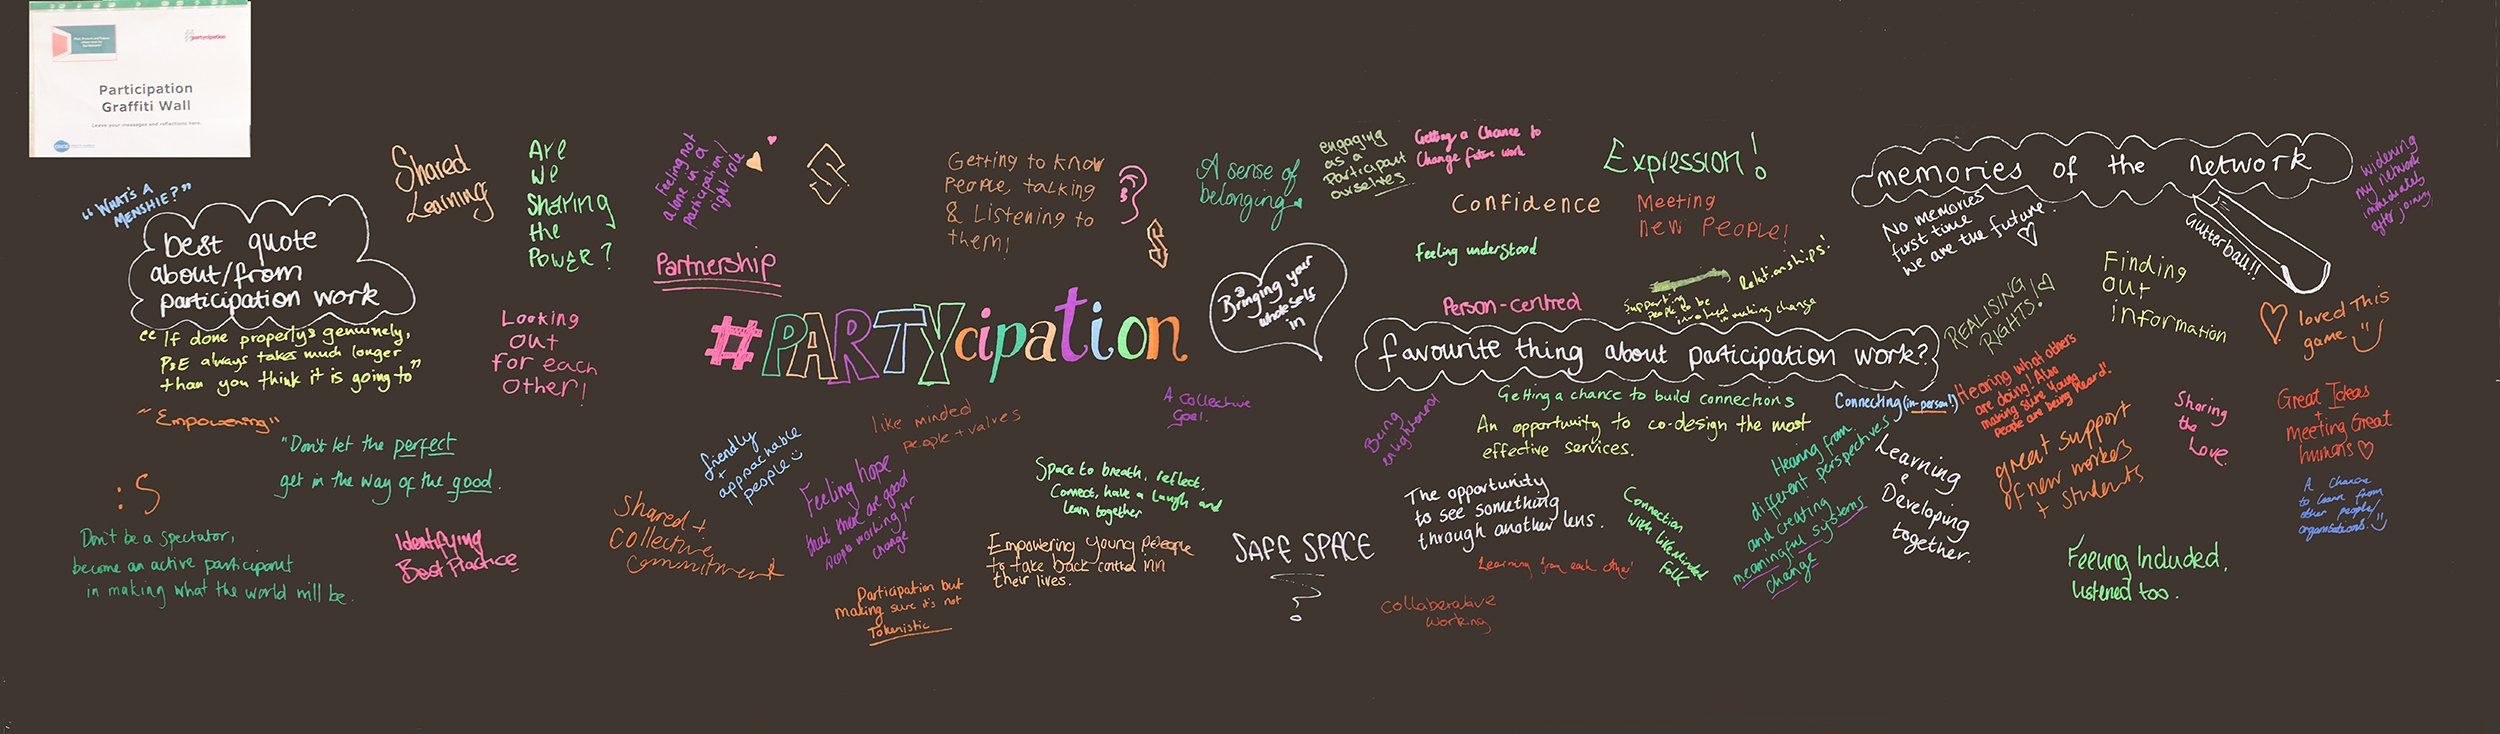 #partycipation
Participation
Graffiti Wall
Leave your messages and reflections here.
"WHAT'S A
MENSHIE?"
best quote
about/from
participation work
"If done properly & genuinely,
P&E always takes much longer
than you think it is going to"
"Empowering"
"Don't let the perfect
get in the way of the good.
:S
Don't be a spectator,
become an active participant
in making what the world will be.
Identifying
Best Practice
Shared
Learning
Are
we
sharing
the
Power?
Looking
out
for each
other!
Feeling not
alone in a
participation/
right role
Partnership
Getting to know
People, talking
& Listening to
them!
#PARTYcipation
friendly
+
appachable
people
like minded
people + valves
Feeling hope
that there are good
people working for
change
Shared +
Collective
Commitment
Participation but
making sure it's not
Tokenistic
Space to breath, reflect,
Connect, have a laugh and
learn together
Empowering young people
to take back control in
their lives.
A Collective
Goal!
A sense of
belonging
engaging
as a
Participant
ourselves
Getting a Chance to
Change future work
Expression!
Confidence
Meeting
new People!
Feeling understood
Bringing your
whole self
in
Person-centred
Relationships!
Supporting
people to be
involved in making change
favourite thing about participation work?
Getting a chance to build connections
Being
enlightened
An opportunity to co-design the most
effective services.
The opportunity
to see something
through another lens.
SAFE SPACE
Learning from each other
Collaborative
Working
Connection
With likeminded
Folk
Connecting (in-person!)
Hearing from
different perspectives
and creating
meaningful systems
change
Learning
&
Developing
together.
memories of the network
No memories
first time
we are the future.
Gutterball!!
Widening
my network
immediately
after joining
REALISING
RIGHTS!
Finding
out
information
loved This
game
Hearing what others
are doing! Also
making sure Young
People are being heard!
great support
of new workers
+ students
Sharing
the
Love
Great Ideas
+
Meeting Great
humans
A Chance
to learn from
other people/
organisations.
Feeling Included,
Listened too.